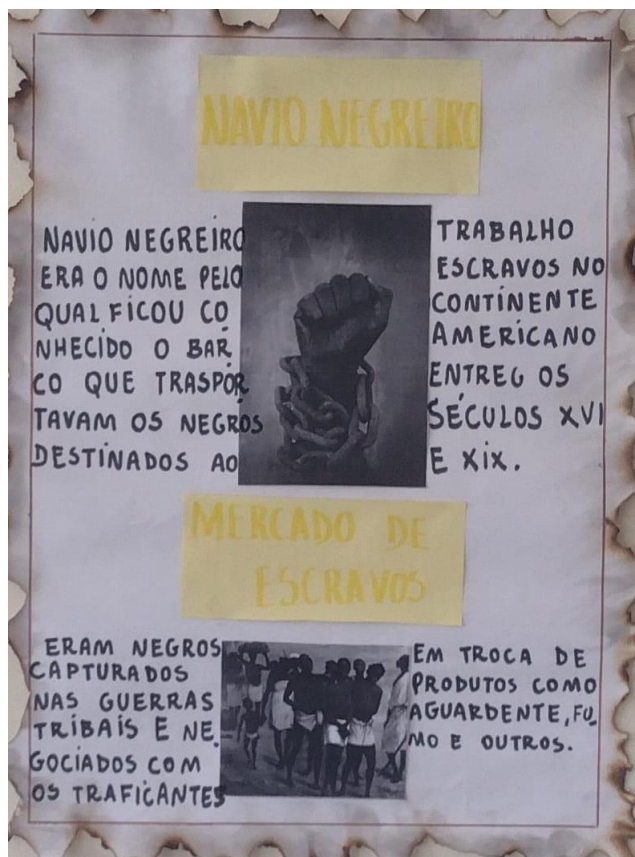 NAVIO NEGREIRO
NAVIO NEGREIRO
ERA O NOME PELO
QUAL FICOU CO
NHECIDO O BAR
CO QUE TRASPOR
TAVAM OS NEGROS
DESTINADOS AO
TRABALHO
ESCRAVOS NO
CONTINENTE
AMERICANO
ENTREG OS
SÉCULOS XVI
E XIX.
MERCADO DE
ESCRAVOS
ERAM NEGROS
CAPTURADOS
NAS GUERRAS
TRIBAIS E NE
GOCIADOS COM
OS TRAFICANTES
EM TROCA DE
PRODUTOS COMO
AGUARDENTE, FU_
MO E OUTROS.